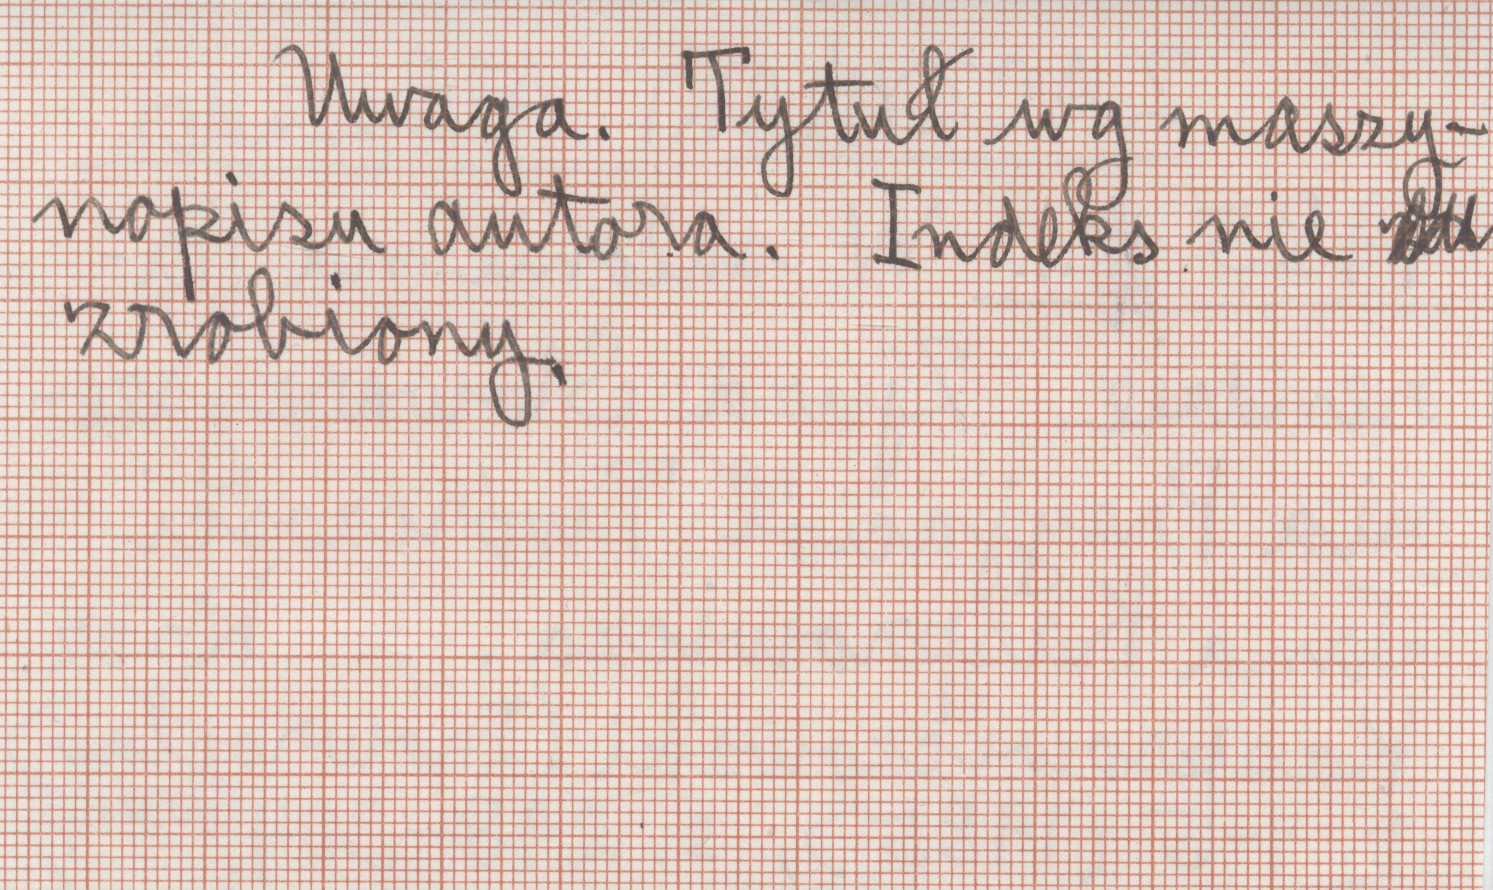 Uwaga. Tytuł wg maszy-
nopisu autora. Indeks nie
zrobiony.